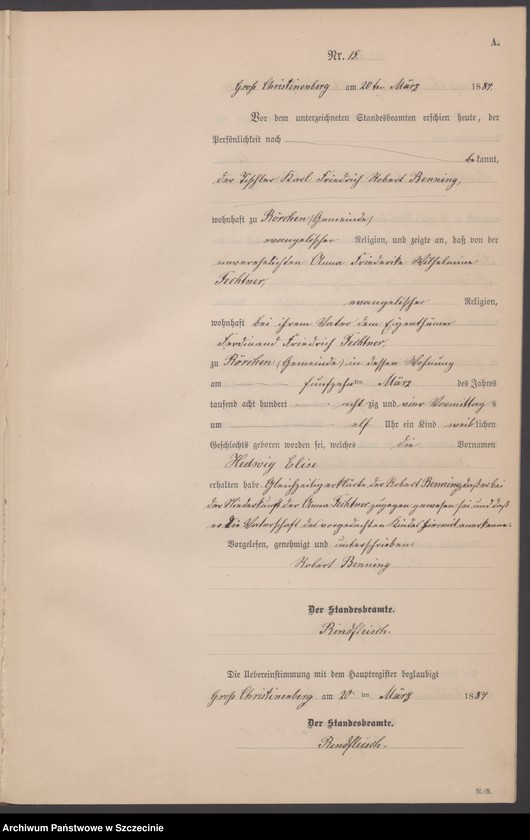 A.
Nr. 15.
Groß Christinenberg am 20ten März 1884.
Vor dem unterzeichneten Standesbeamten erschien heute, der
Persönlichkeit nach
bekannt,
der Tischler Karl Friedrich Robert Benning,
wohnhaft zu Rörchen (Gemeinde)
evangelischer Religion, und zeigte an, daß von der
unverehelichten Anna Friederike Wilhelmine
Fechtner,
evangelischer Religion,
wohnhaft bei ihrem Vater dem Eigenthümer
Ferdinand Friedrich Fechtner,
zu Rörchen (Gemeinde) in dessen Wohnung
am fünfzehnten März des Jahres
tausend acht hundert acht zig und vier Vormittags
um elf Uhr ein Kind weiblichen
Geschlechts geboren worden sei, welches die Vornamen
Hedwig Elise
erhalten habe. Gleichzeitig erklärte der Robert Benning, daß er bei
der Niederkunft der Anna Fechtner zugegen gewesen sei und daß
er die Vaterschaft des vorgedachten Kindes hiermit anerkenne.
Vorgelesen, genehmigt und unterschrieben
Robert Benning
Der Standesbeamte.
Rindfleisch.
Die Uebereinstimmung mit dem Hauptregister beglaubigt
Groß Christinenberg am 20.ten März 1884
Der Standesbeamte.
Rindfleisch.
Archiwum Państwowe w Szczecinie